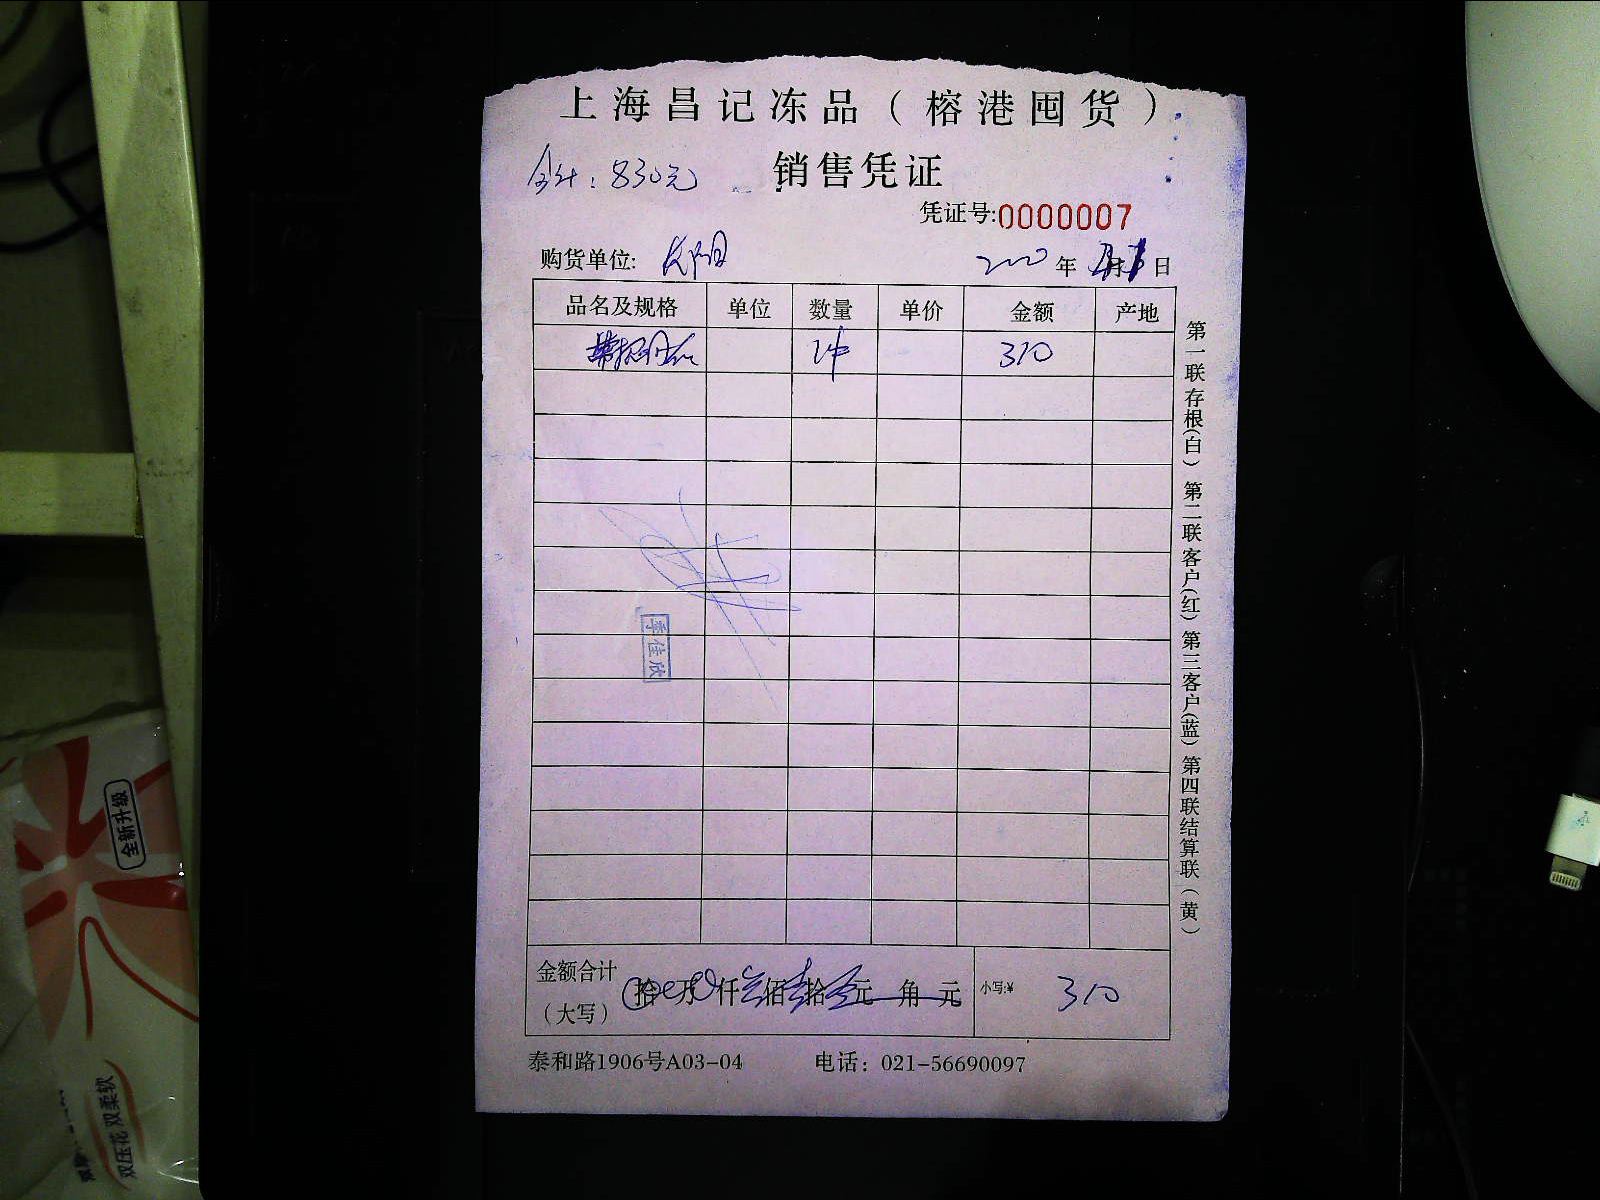 上海昌记冻品（榕港囤货）
合计：830元
销售凭证
凭证号:0000007
购货单位:
年 月 日
品名及规格 单位 数量 单价 金额 产地
1件 310
李佳欣
金额合计（大写） 拾 万 仟 佰 拾 元 角 元 小写:¥ 310
泰和路1906号A03-04 电话：021-56690097
第一联存根(白) 第二联客户(红) 第三客户(蓝) 第四联结算联(黄)
全新升级
双压花 双柔软